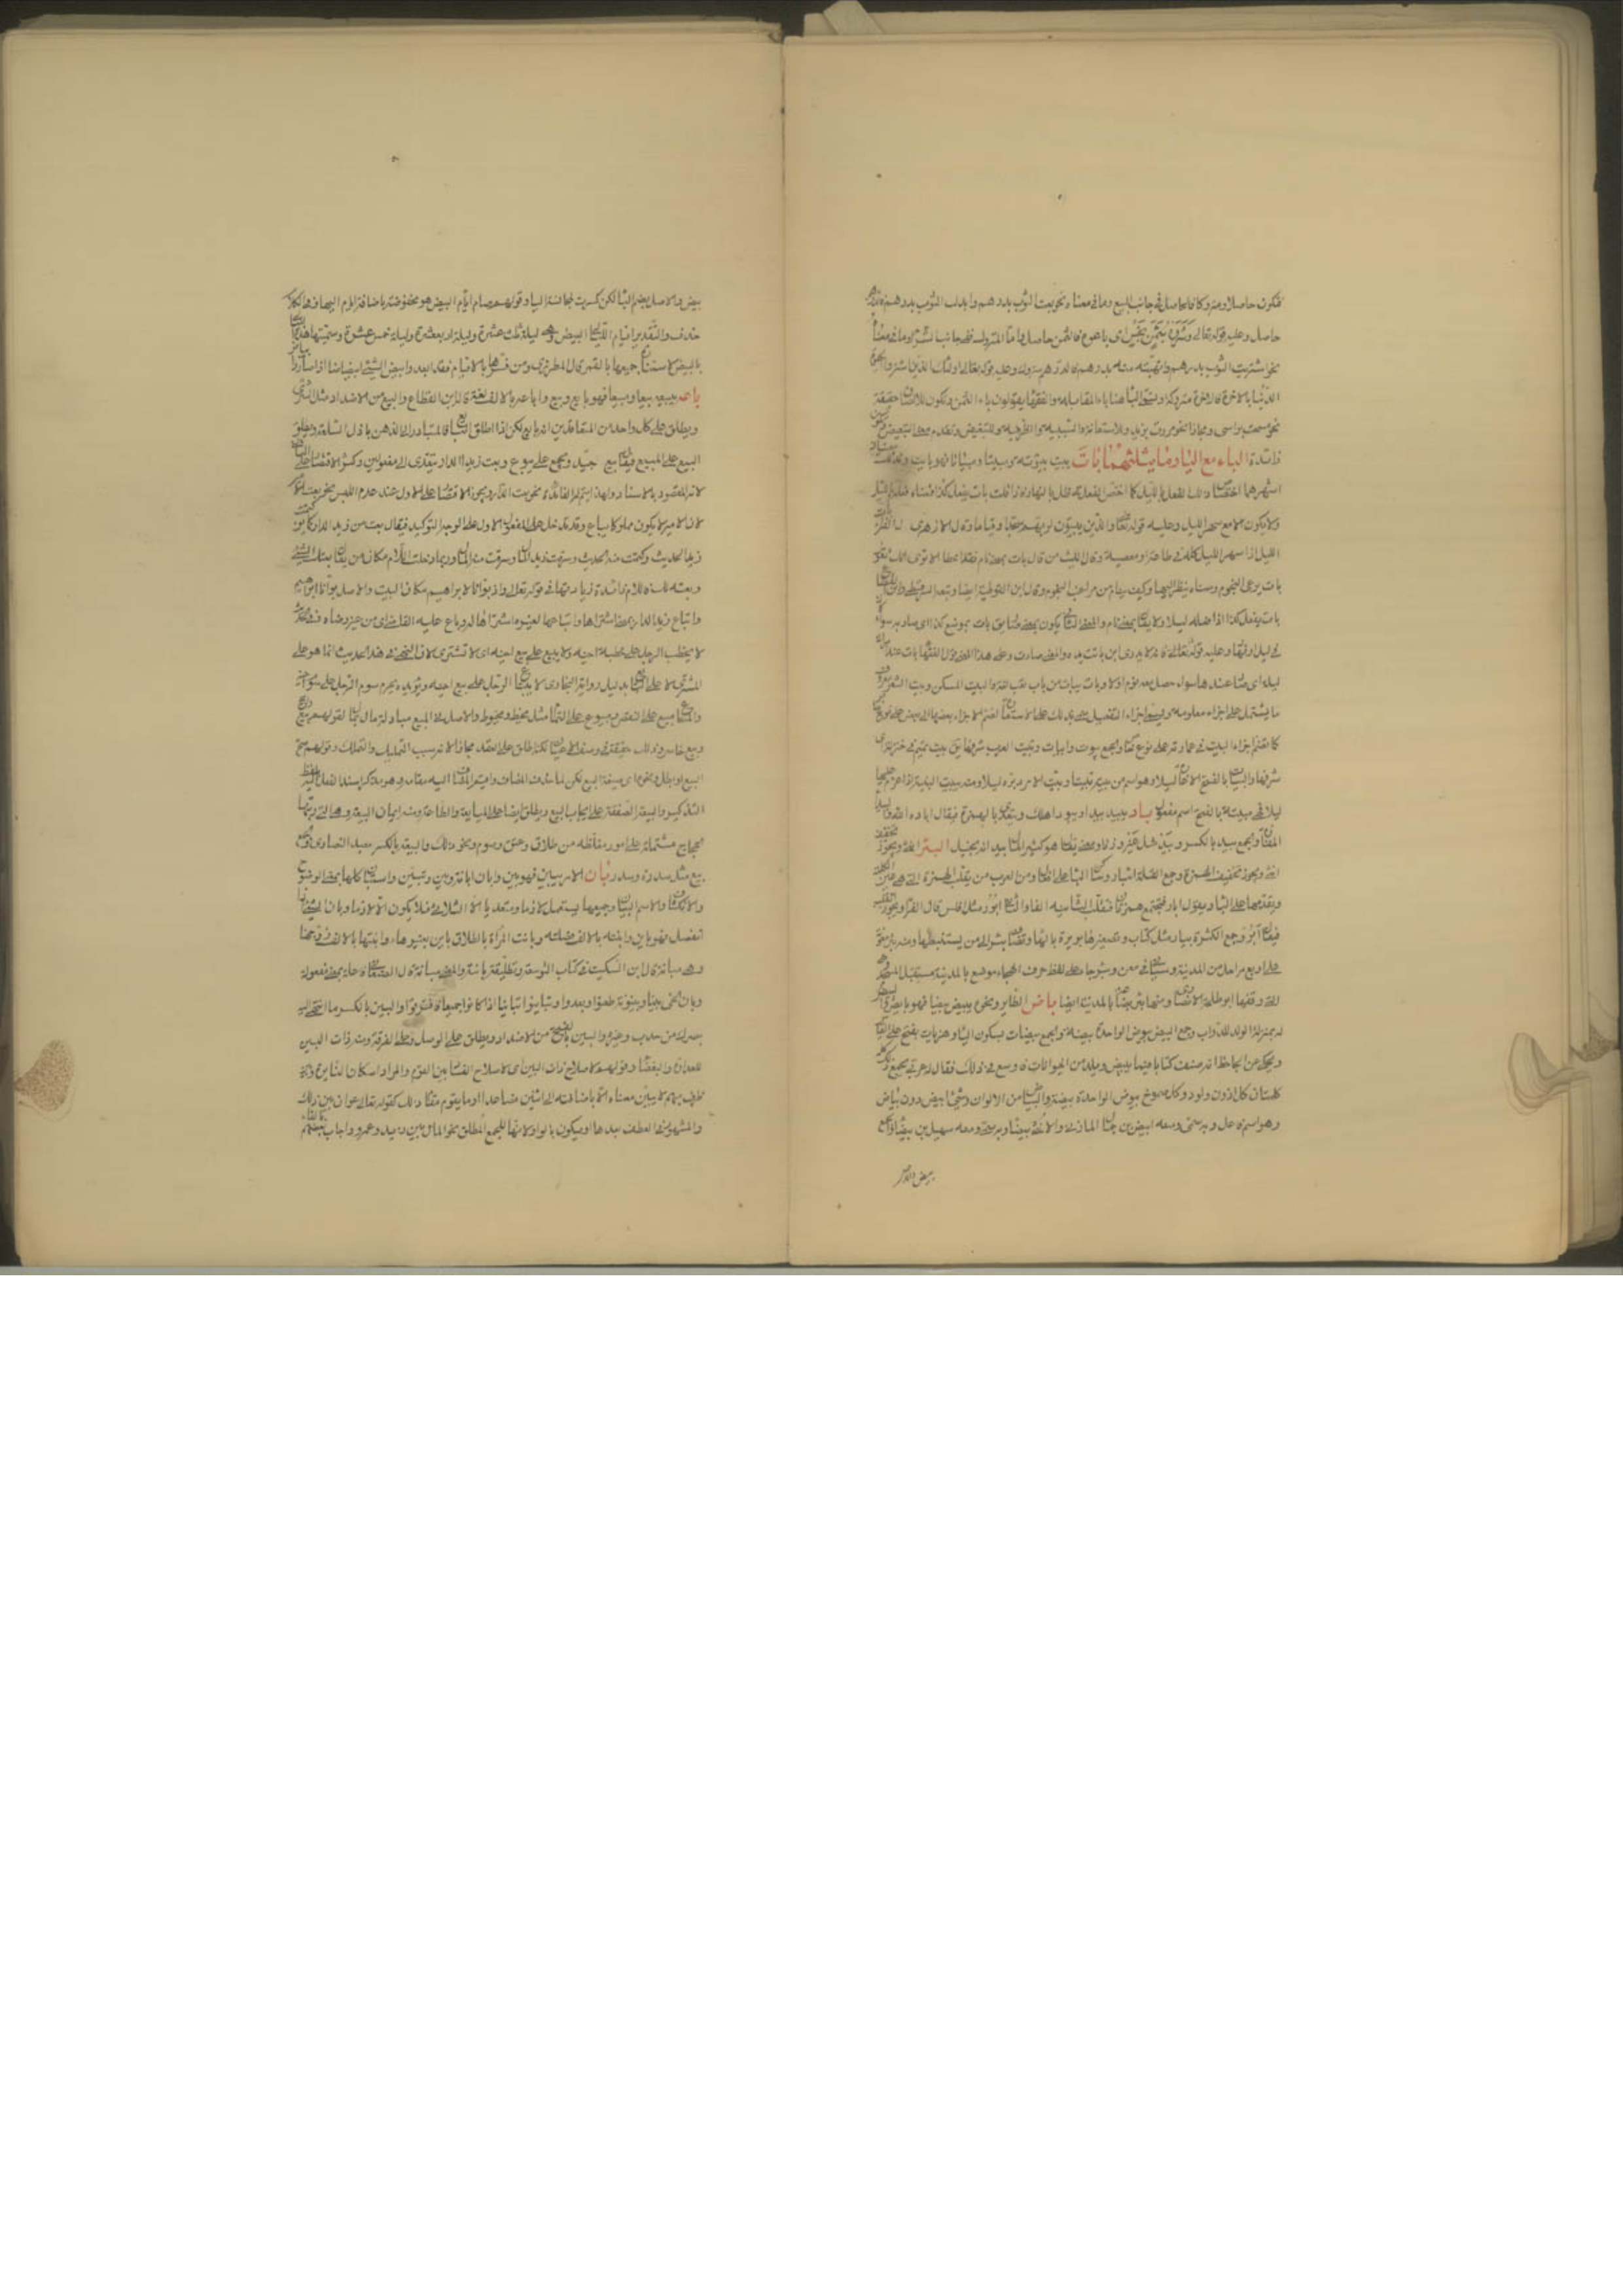 فتكون حاصلا ومتروكا فالحاصل في جانب البيع وما في معناه نحو بعت الثوب بدرهم وابدلت الثوب بدرهم فالدرهم
حاصل وعليه قوله تعالى وشروه بثمن بخس اى باعوه فالثمن حاصل واما المتروك ففى جانب الشراء وما فى معناه
نحو اشتريت الثوب بدرهم واتهبته منه بدرهم فالدرهم متروك وعليه قوله تعالى اولئك الذين اشتروا الحيوة
الدنيا بالاخرة فالاخرة متروكة وتسمى الباء هنا باء المقابلة والفقهاء يقولون باء الثمن وتكون للالصاق حقيقة
نحو مسحت براسى ومجازا نحو مررت بزيد وللاستعانة والسببية والظرفية وللتبعيض وتقدم معنى التبعيض وتكون
زائدة الباء مع الياء وما يثلثهما بات يبيت بيتوتة ومبيتا ومباتا فهو بايت
اشهرهما اختصاص ذلك الفعل بالليل كما اختص الفعل فى ظل بالنهار فاذا قلت بات يفعل كذا فمعناه فعله بالليل
ولا يكون الا مع سهر الليل وعليه قوله تعالى والذين يبيتون لربهم سجدا وقياما وقال الازهرى قال الفراء بات
الليل اذا سهر الليل كله فى طاعة او معصية وقال الليث من قال بات بمعنى نام فقد اخطا الا ترى انك تقول
بات يرعى النجوم ومعناه ينظر اليها وكيف ينام من مراقب النجوم وقال ابن القوطية ايضا وتبعه السرقسطى وابن القطاع
بات يفعل كذا اذا فعله ليلا ولا يقال بمعنى نام والمعنى الثانى يكون بمعنى صار يقال بات بموضع كذا اى صار به سواء كان
فى ليل او نهار وعليه قوله عليه السلام فانه لا يدرى اين باتت يده والمعنى صارت وعلى هذا المعنى قول الفقهاء بات عند امراته
ليلة اى صار عندها سواء حصل معه نوم ام لا وبات يبات من باب تعب لغة والبيت المسكن وبيت الشعر معروف وبيت الشعر
ما يشتمل على اجزاء معلومة وتسمى اجزاء التفعيل سمى بذلك على الاستعارة لضم الاجزاء بعضها الى بعض على نوع خاص
كما تضم اجزاء البيت فى عمارته على نوع خاص والجمع بيوت وابيات وبيت العرب شرفها يقال بيت تميم فى حنظلة اى
شرفها والبيات بالفتح الاغارة ليلا وهو اسم من بيته تبييتا وبيت الامر دبره ليلا وبيت النية اذا عزم عليها
ليلا فهى مبيتة بالفتح اسم مفعول باد يبيد بيدا وبيودا هلك ويتعدى بالهمزة فيقال اباده الله والبيداء
المفازة والجمع بيد بالكسر وبيد مثل غير وزنا ومعنى يقال هو كثير المال بيد انه بخيل البئر انثى ويجوز تخفيف
الهمزة وجمع القلة ابئار
ويقدمها على الباء ويقول اابار فتجتمع همزتان فتقلب الثانية الفا والثانى ابؤر مثل افلس قال الفراء ويجوز القلب
فيقال آبر وجمع الكثرة بئار مثل كتاب وتصغيرها بويرة بالهاء
على اربع مراحل من المدينة
لله وقفها ابو طلحة الانصارى ومنها بئر بضاعة بالمدينة ايضا باض الطاير ونحوه يبيض بيضا فهو بايض والبيض
له بمنزلة الولد للدواب وجمع البيض بيوض الواحدة بيضة والجمع بيضات بسكون الياء وهذيل تفتح على القياس
ويحكى عن الجاحظ انه صنف كتابا فيما يبيض ويلد من الحيوانات فاوسع فى ذلك فقال له عربى يجمع ذلك كله
كلمتان كل اذون ولود وكل صموخ بيوض الواحدة بيضة والبياض من الالوان وشىء ابيض ذو بياض
وهو اسم فاعل وبه سمى ومنه ابيض بن حمال الماربى والانثى بيضاء وبه سمى ومنه سهيل بن بيضاء والجمع
بيض والاصل
بيض والاصل بضم الباء لكن كسرت لمجانسة الياء وقولهم صام ايام البيض هى مخفوضة باضافة ايام اليها وفى الكلام
حذف والتقدير ايام الليالى البيض وهى ليلة ثلث عشرة وليلة اربع عشرة وليلة خمس عشرة وسميت هذه الليالى
بالبيض لاستنارة جميعها بالقمر قال المطرزى ومن فسرها بالايام فقد ابعد وابيض الشىء ابيضاضا اذا صار ذا بياض
باعه يبيعه بيعا ومبيعا فهو بايع وبيع واباعه بالالف لغة قاله ابن القطاع والبيع من الاضداد مثل الشرى
ويطلق على كل واحد من المتعاقدين انه بايع لكن اذا اطلق البايع فالمتبادر الى الذهن باذل السلعة ويطلق
البيع على المبيع فيقال بيع جيد ويجمع على بيوع وبعت زيدا الدار يتعدى الى مفعولين وكثر الاقتصار على الثانى
لانه المقصود بالاسناد ولهذا تتم به الفائدة نحو بعت الدار ويجوز الاقتصار على الاول عند عدم اللبس نحو بعت الامير
لان الامير لا يكون مملوكا يباع وقد تدخل من على المفعول الاول على وجه التوكيد فيقال بعت من زيد الدار كما يقال كتمت
زيدا الحديث وكتمت منه الحديث وسرقت زيدا المال وسرقت منه المال وربما دخلت اللام مكان من يقال بعتك الشىء
وبعته لك فاللام زائدة زيادتها فى قوله تعالى واذ بوانا لابراهيم مكان البيت والاصل بوانا ابراهيم
وابتاع زيد الدار بمعنى اشتراها وابتاعها لغيره اشتراها له وباع عليه القاضى اى من غير رضاه وفى الحديث
لا يخطب الرجل على خطبة اخيه ولا يبيع على بيع اخيه اى لا تشترى لان النهى فى هذا الحديث انما هو على
المشترى لا على البايع بدليل رواية البخارى لا يبتاع الرجل على بيع اخيه ويؤيده يحرم سوم الرجل على سوم اخيه
والمبتاع مبيع على النقص ومبيوع على التمام مثل مخيط ومخيوط والاصل فى البيع مبادلة مال بمال لقولهم بيع رابح
وبيع خاسر وذلك حقيقة فى وصف الاعيان لكنه اطلق على العقد مجازا لانه سبب التمليك والتملك وقولهم صح
البيع او بطل ونحوه اى صيغة البيع لكن لما حذف المضاف واقيم المضاف اليه مقامه وهو مذكر اسند الفعل اليه بلفظ
التذكير والبيعة الصفقة على ايجاب البيع وتطلق ايضا على المبايعة والطاعة ومنه ايمان البيعة وهى التى رتبها
الحجاج مشتملة على امور مغلظة من طلاق وعتق وصوم ونحو ذلك والبيعة بالكسر معبد النصارى والجمع
بيع مثل سدرة وسدر بان الامر يبين فهو بين وابان ابانة وبين وتبين واستبان كلها بمعنى الوضوح
والانكشاف والاسم البيان وجميعها يستعمل لازما ومتعديا الا الثلاثى فلا يكون الا لازما وبان الشىء اذا
انفصل فهو باين وابنته بالالف فصلته وبانت المراة بالطلاق باين بغير هاء وابانها زوجها
وهى مبانة قال ابن السكيت فى كتاب التوسعة وتطليقة باينة والمعنى مبانة قال الصغانى فاعلة بمعنى مفعولة
وبان الحى بينا وبينونة ظعنوا وبعدوا وتباينوا تباينا اذا كانوا جميعا فافترقوا والبين بالكسر ما انتهى اليه
بصرك من حدب وغيره والبين بالفتح من الاضداد ويطلق على الوصل وعلى الفرقة ومنه ذات البين
للعداوة والبغضاء وقولهم لاصلاح ذات البين اى لاصلاح الفساد بين القوم والمراد اسكان الثايرة وبين
ظرف مبهم لا يتبين معناه الا باضافته الى اثنين فصاعدا او ما يقوم مقام ذلك كقوله تعالى عوان بين ذلك
والمشهور فى العطف بعدها ان يكون بالواو لانها للجمع المطلق نحو المال بين زيد وعمرو واجاز بعضهم